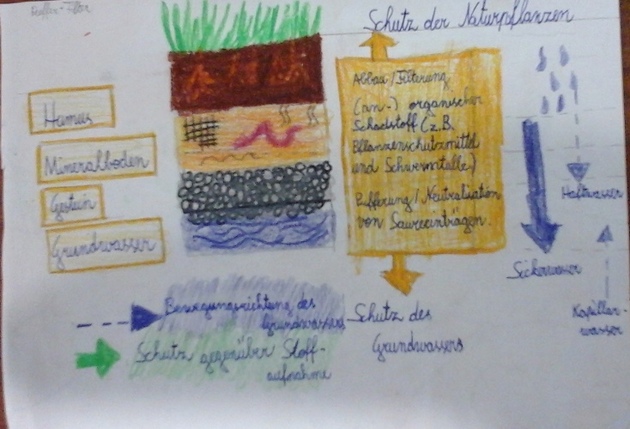 Puffer-Filter
Schutz der Naturpflanzen
Abbau/Filterung
(an-) organischer
Schadstoff (z.B.
Pflanzenschutzmittel
und Schwermetalle)
Pufferung/Neutralisation
von Säureeinträgen.
Humus
Mineralboden
Gestein
Grundwasser
Haftwasser
Sickerwasser
Kapillar-
wasser
Bewegungsrichtung des
Grundwassers
Schutz des
Grundwassers
Schutz gegenüber Stoff-
aufnahme